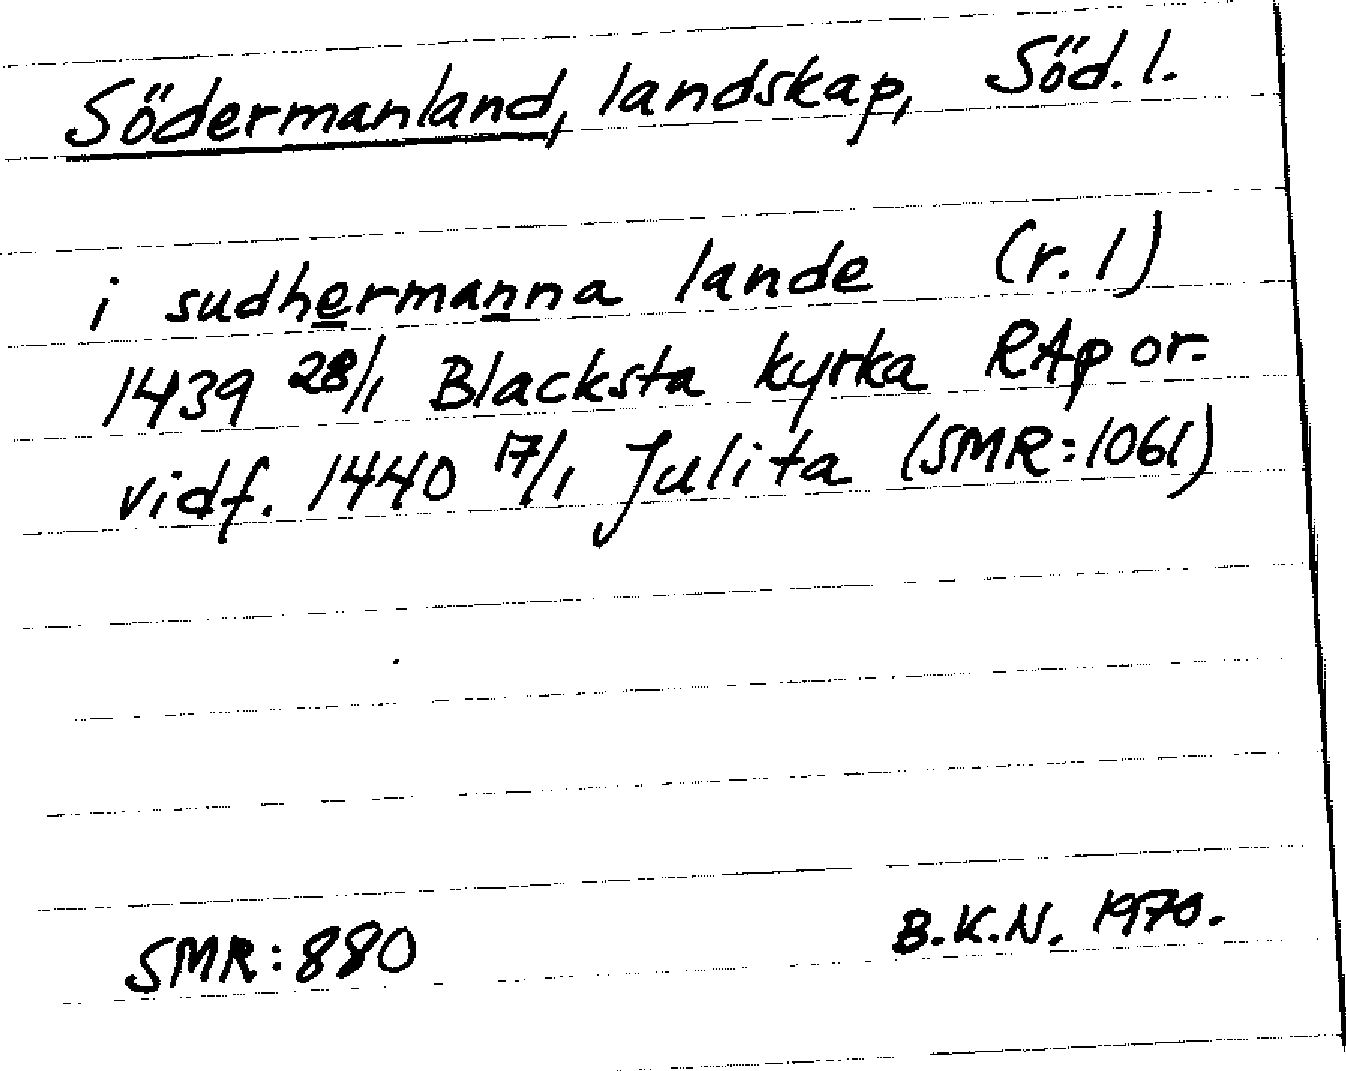 Södermanland, landskap, Söd. l.
i sudhermanna lande (r. 1)
1439 28/1 Blacksta kyrka RAp or.
vidf. 1440 17/1 Julita (SMR:1061)
SMR:880 B.K.N. 1970.